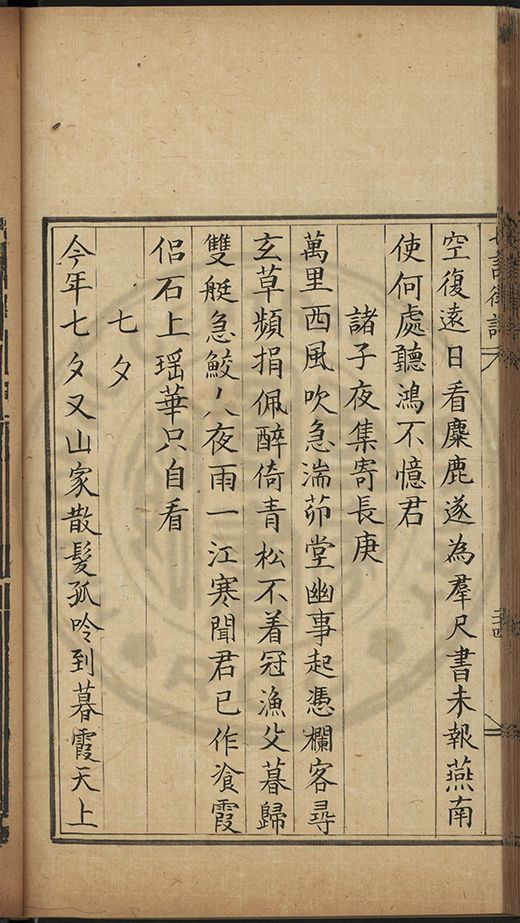 空復遠日看麋鹿遂為羣尺書未報燕南
使何處聽鴻不憶君
諸子夜集寄長庚
萬里西風吹急湍茆堂幽事起憑欄客尋
玄草頻捐佩醉倚青松不着冠漁父暮歸
雙艇急鮫人夜雨一江寒聞君已作飡霞
侶石上瑶華只自看
七夕
今年七夕又山家散髮孤吟到暮霞天上